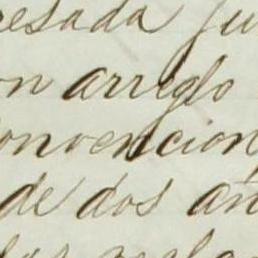 esada ju
on arreglo
onvencion
de dos añ